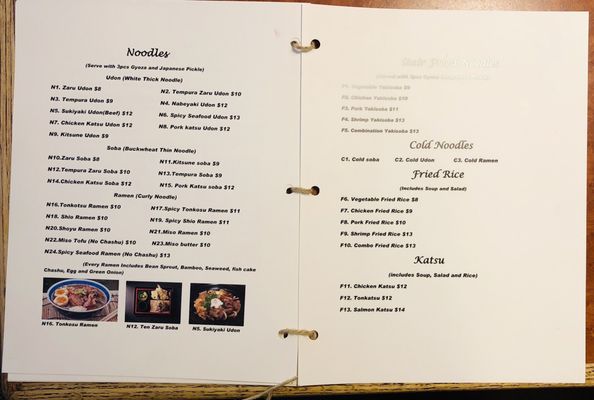 Noodles
(Serve with 3pcs Gyoza and Japanese Pickle)
Udon (White Thick Noodle)
N1. Zaru Udon $8
N2. Tempura Zaru Udon $10
N3. Tempura Udon $9
N4. Nabeyaki Udon $12
N5. Sukiyaki Udon(Beef) $12
N6. Spicy Seafood Udon $13
N7. Chicken Katsu Udon $12
N8. Pork katsu Udon $12
N9. Kitsune Udon $9
Soba (Buckwheat Thin Noodle)
N10.Zaru Soba $8
N11.Kitsune soba $9
N12.Tempura Zaru Soba $10
N13.Tempura Soba $9
N14.Chicken Katsu Soba $12
N15. Pork Katsu soba $12
Ramen (Curly Noodle)
N16.Tonkotsu Ramen $10
N17.Spicy Tonkosu Ramen $11
N18. Shio Ramen $10
N19. Spicy Shio Ramen $11
N20.Shoyu Ramen $10
N21.Miso Ramen $10
N22.Miso Tofu (No Chashu) $10
N23.Miso butter $10
N24.Spicy Seafood Ramen (No Chashu) $13
(Every Ramen Includes Bean Sprout, Bamboo, Seaweed, fish cake
Chashu, Egg and Green Onion)
N16. Tonkosu Ramen
N12. Ten Zaru Soba
N5. Sukiyaki Udon
Noodle
F1. Vegetable Yakisoba $9
F2. Chicken Yakisoba $10
F3. Pork Yakisoba $11
F4. Shrimp Yakisoba $13
F5. Combination Yakisoba $13
Cold Noodles
C1. Cold soba
C2. Cold Udon
C3. Cold Ramen
Fried Rice
(Includes Soup and Salad)
F6. Vegetable Fried Rice $8
F7. Chicken Fried Rice $9
F8. Pork Fried Rice $10
F9. Shrimp Fried Rice $13
F10. Combo Fried Rice $13
Katsu
(includes Soup, Salad and Rice)
F11. Chicken Katsu $12
F12. Tonkatsu $12
F13. Salmon Katsu $14